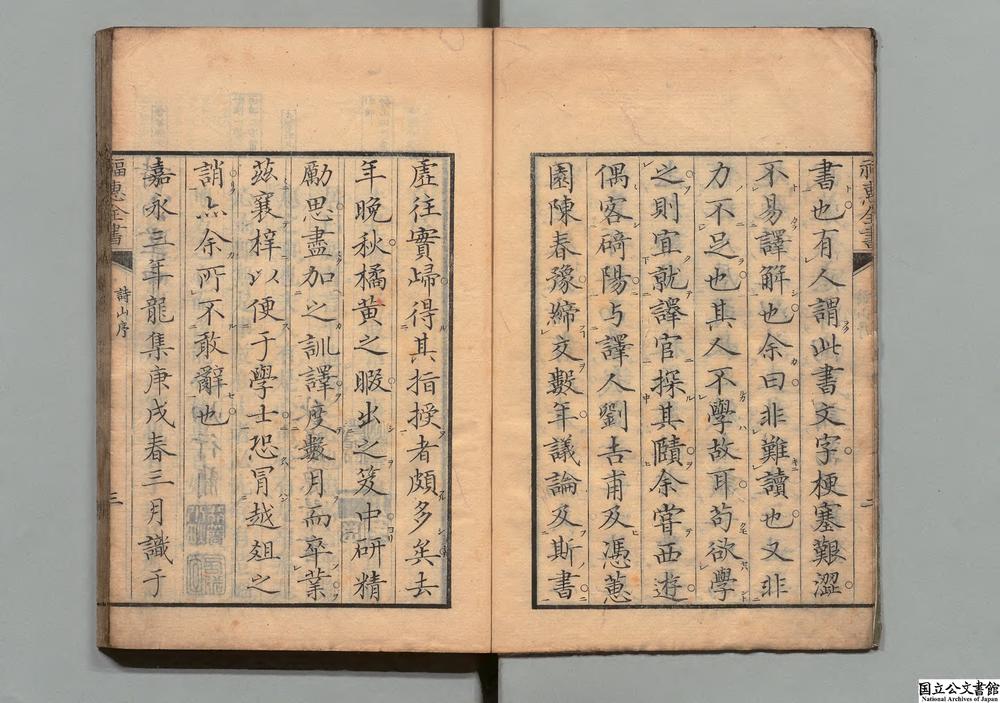 福惠全書
書也有人謂此書文字梗塞艱澀
不易譯解也余曰非難讀也又非
力不足也其人不學故耳苟欲學
之則宜就譯官探其賾余嘗西遊
偶客碕陽与譯人劉吉甫及馮蕙
園陳春豫締交數年議論及斯書
虛往實歸得其指授者頗多矣去
年晚秋橘黄之暇出之笈中研精
勵思盡加之訓譯度數月而卒業
茲襄梓以便于學士恐冒越俎之
誚亦余所不敢辭也
嘉永三年龍集庚戌春三月識于
福惠全書
詩山序
三
国立公文書館
National Archives of Japan